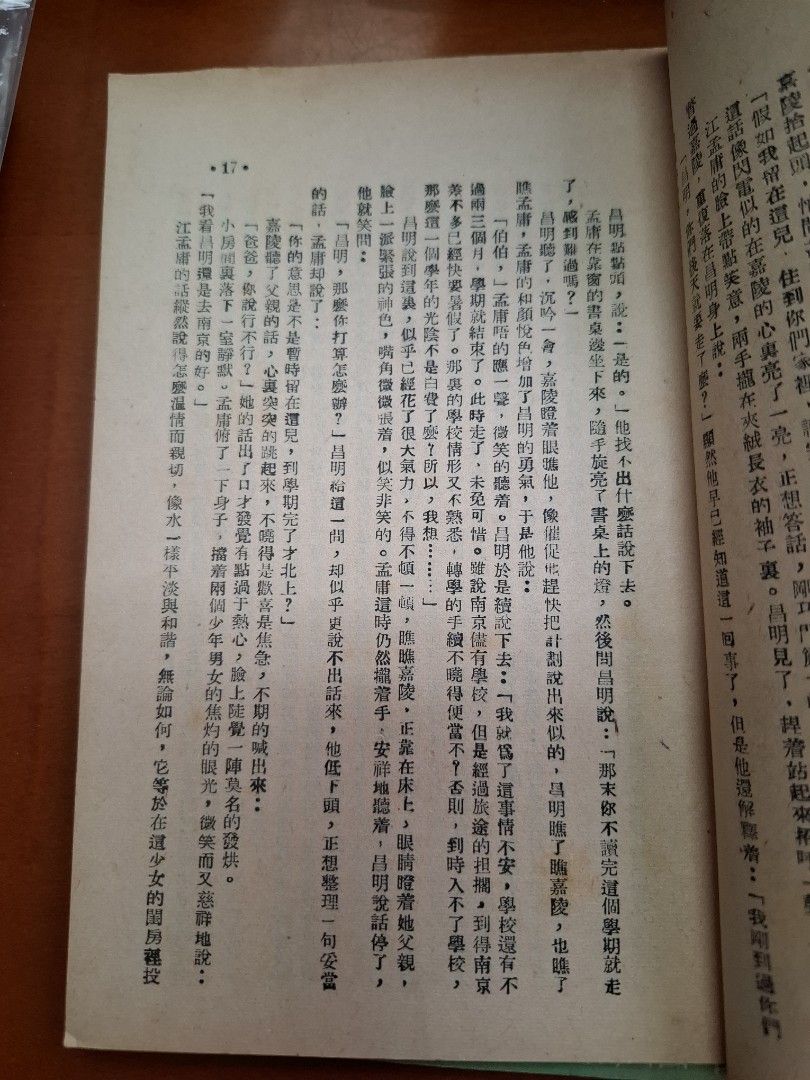 嘉陵抬起頭，
「假如我留在這兒，住到你們家裡，
這話像閃電似的在嘉陵的心裏亮了一亮，正想答話，
江孟庸的臉上帶點笑意，兩手攏在夾絨長衣的袖子裏。昌明見了，捏着站起來
瞥過嘉陵，重復落在昌明身上說：
「昌明，你們後天就要走了麼？」顯然他早已經知道這一回事了，但是他還解釋着：「我剛到過你們
昌明點點頭，說：「是的。」他找不出什麼話說下去。
孟庸在靠窗的書桌邊坐下來，隨手旋亮了書桌上的燈，然後問昌明說：「那末你不讀完這個學期就走
了，感到難過嗎？」
昌明聽了，沉吟一會，嘉陵瞪着眼瞧他，像催促他趕快把計劃說出來似的，昌明瞧了瞧嘉陵，也瞧了
瞧孟庸，孟庸的和顏悅色增加了昌明的勇氣，于是他說：
「伯伯，」孟庸唔的應一聲，微笑的聽着。昌明於是續說下去：「我就爲了這事情不安，學校還有不
過兩三個月，學期就結束了。此時走了，未免可惜。雖說南京儘有學校，但是經過旅途的担擱，到得南京
差不多已經快要暑假了。那裏的學校情形又不熟悉，轉學的手續不曉得便當不？否則，到時入不了學校，
那麼這一個學年的光陰不是白費了麼？所以，我想………」
昌明說到這裏，似乎已經花了很大氣力，不得不頓一頓，瞧瞧嘉陵，正靠在床上，眼睛瞪着她父親，
臉上一派緊張的神色，嘴角微微張着，似笑非笑的。孟庸這時仍然攏着手，安祥地聽着，昌明說話停了，
他就笑問：
「昌明，那麼你打算怎麼辦？」昌明給這一問，却似乎更說不出話來，他低下頭，正想整理一句妥當
的話，孟庸却說了：
「你的意思是不是暫時留在這兒，到學期完了才北上？」
嘉陵聽了父親的話，心裏突突的跳起來，不曉得是歡喜是焦急，不期的喊出來：
「爸爸，你說行不行？」她的話出了口才發覺有點過于熱心，臉上陡覺一陣莫名的發烘。
小房間裏落下一室靜默。孟庸俯了一下身子，擋着兩個少年男女的焦灼的眼光，微笑而又慈祥地說：
「我看昌明還是去南京的好。」
江孟庸的話縱然說得怎麼溫情而親切，像水一樣平淡與和諧，無論如何，它等於在這少女的閨房裡投
•17•